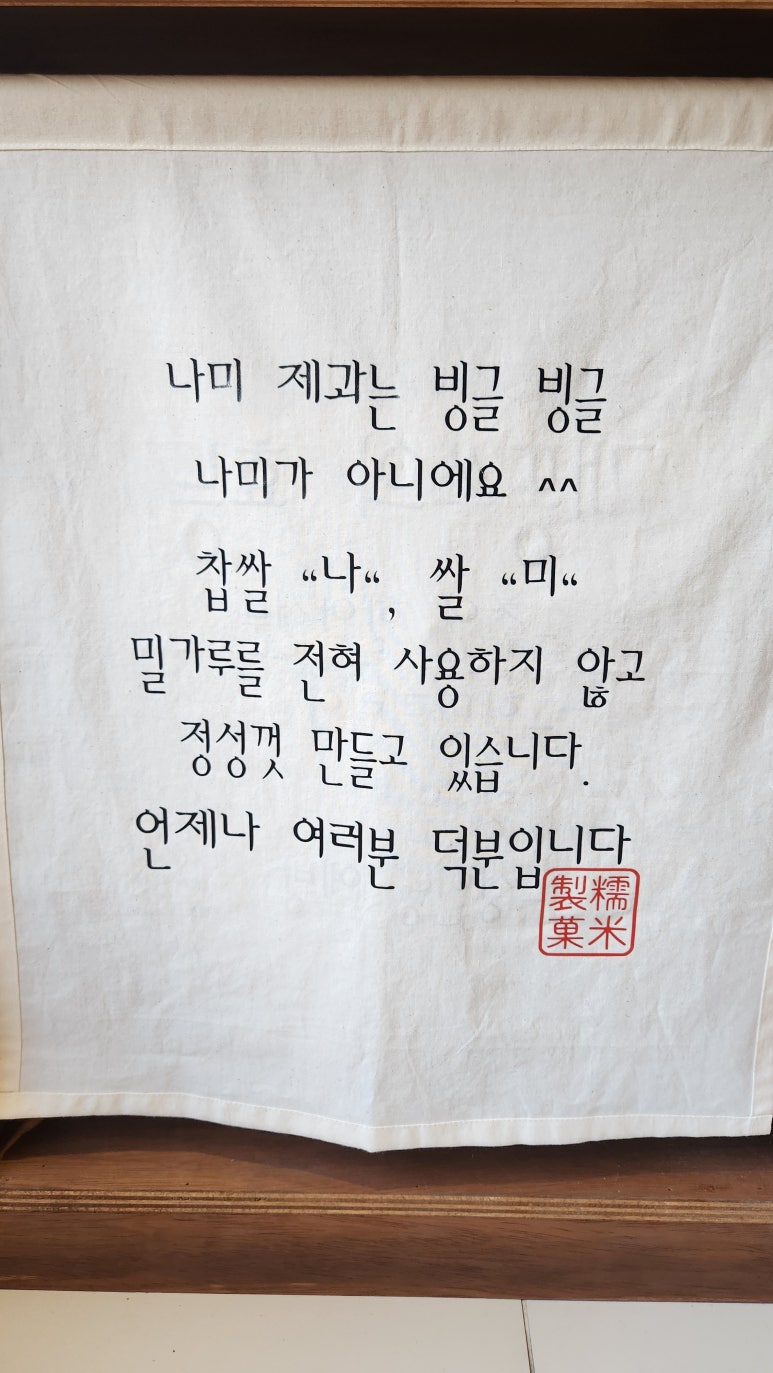 나미 제과는 빙글 빙글
나미가 아니에요 ^^
찹쌀 “나“, 쌀 “미“
밀가루를 전혀 사용하지 않고
정성껏 만들고 있습니다.
언제나 여러분 덕분입니다
糯米
製菓